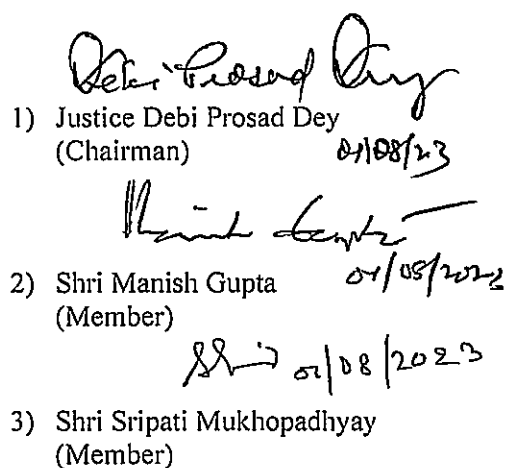 Debi Prosad Dey
1) Justice Debi Prosad Dey
(Chairman) 01/08/23
Manish Gupta
2) Shri Manish Gupta
(Member)
01/08/2023
3) Shri Sripati Mukhopadhyay
(Member)